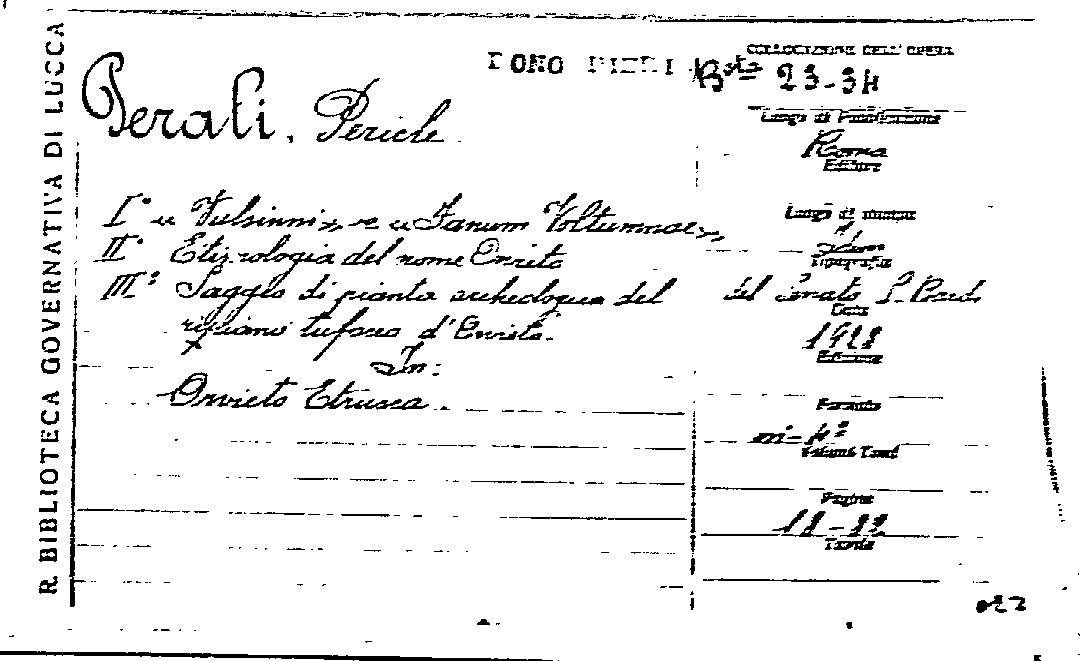 R. BIBLIOTECA GOVERNATIVA DI LUCCA
DONO PIERI
COLLOCAZIONE DELL'OPERA
Bsta 23-34
Perali, Pericle
Luogo di Pubblicazione
Roma
Editore
I° « Vulsinni» e « Fanum Voltumnae»,
II° Etimologia del nome Orvieto
III° Saggio di pianta archeologica del
ripiano tufaceo d'Orvieto.
In:
Orvieto Etrusca.
Luogo di stampa
Idem
Tipografia
del Senato G. Bardi
Data
1928
Edizione
Formato
in-4°
Volume Tomi
Pagine
11-22
Tavole